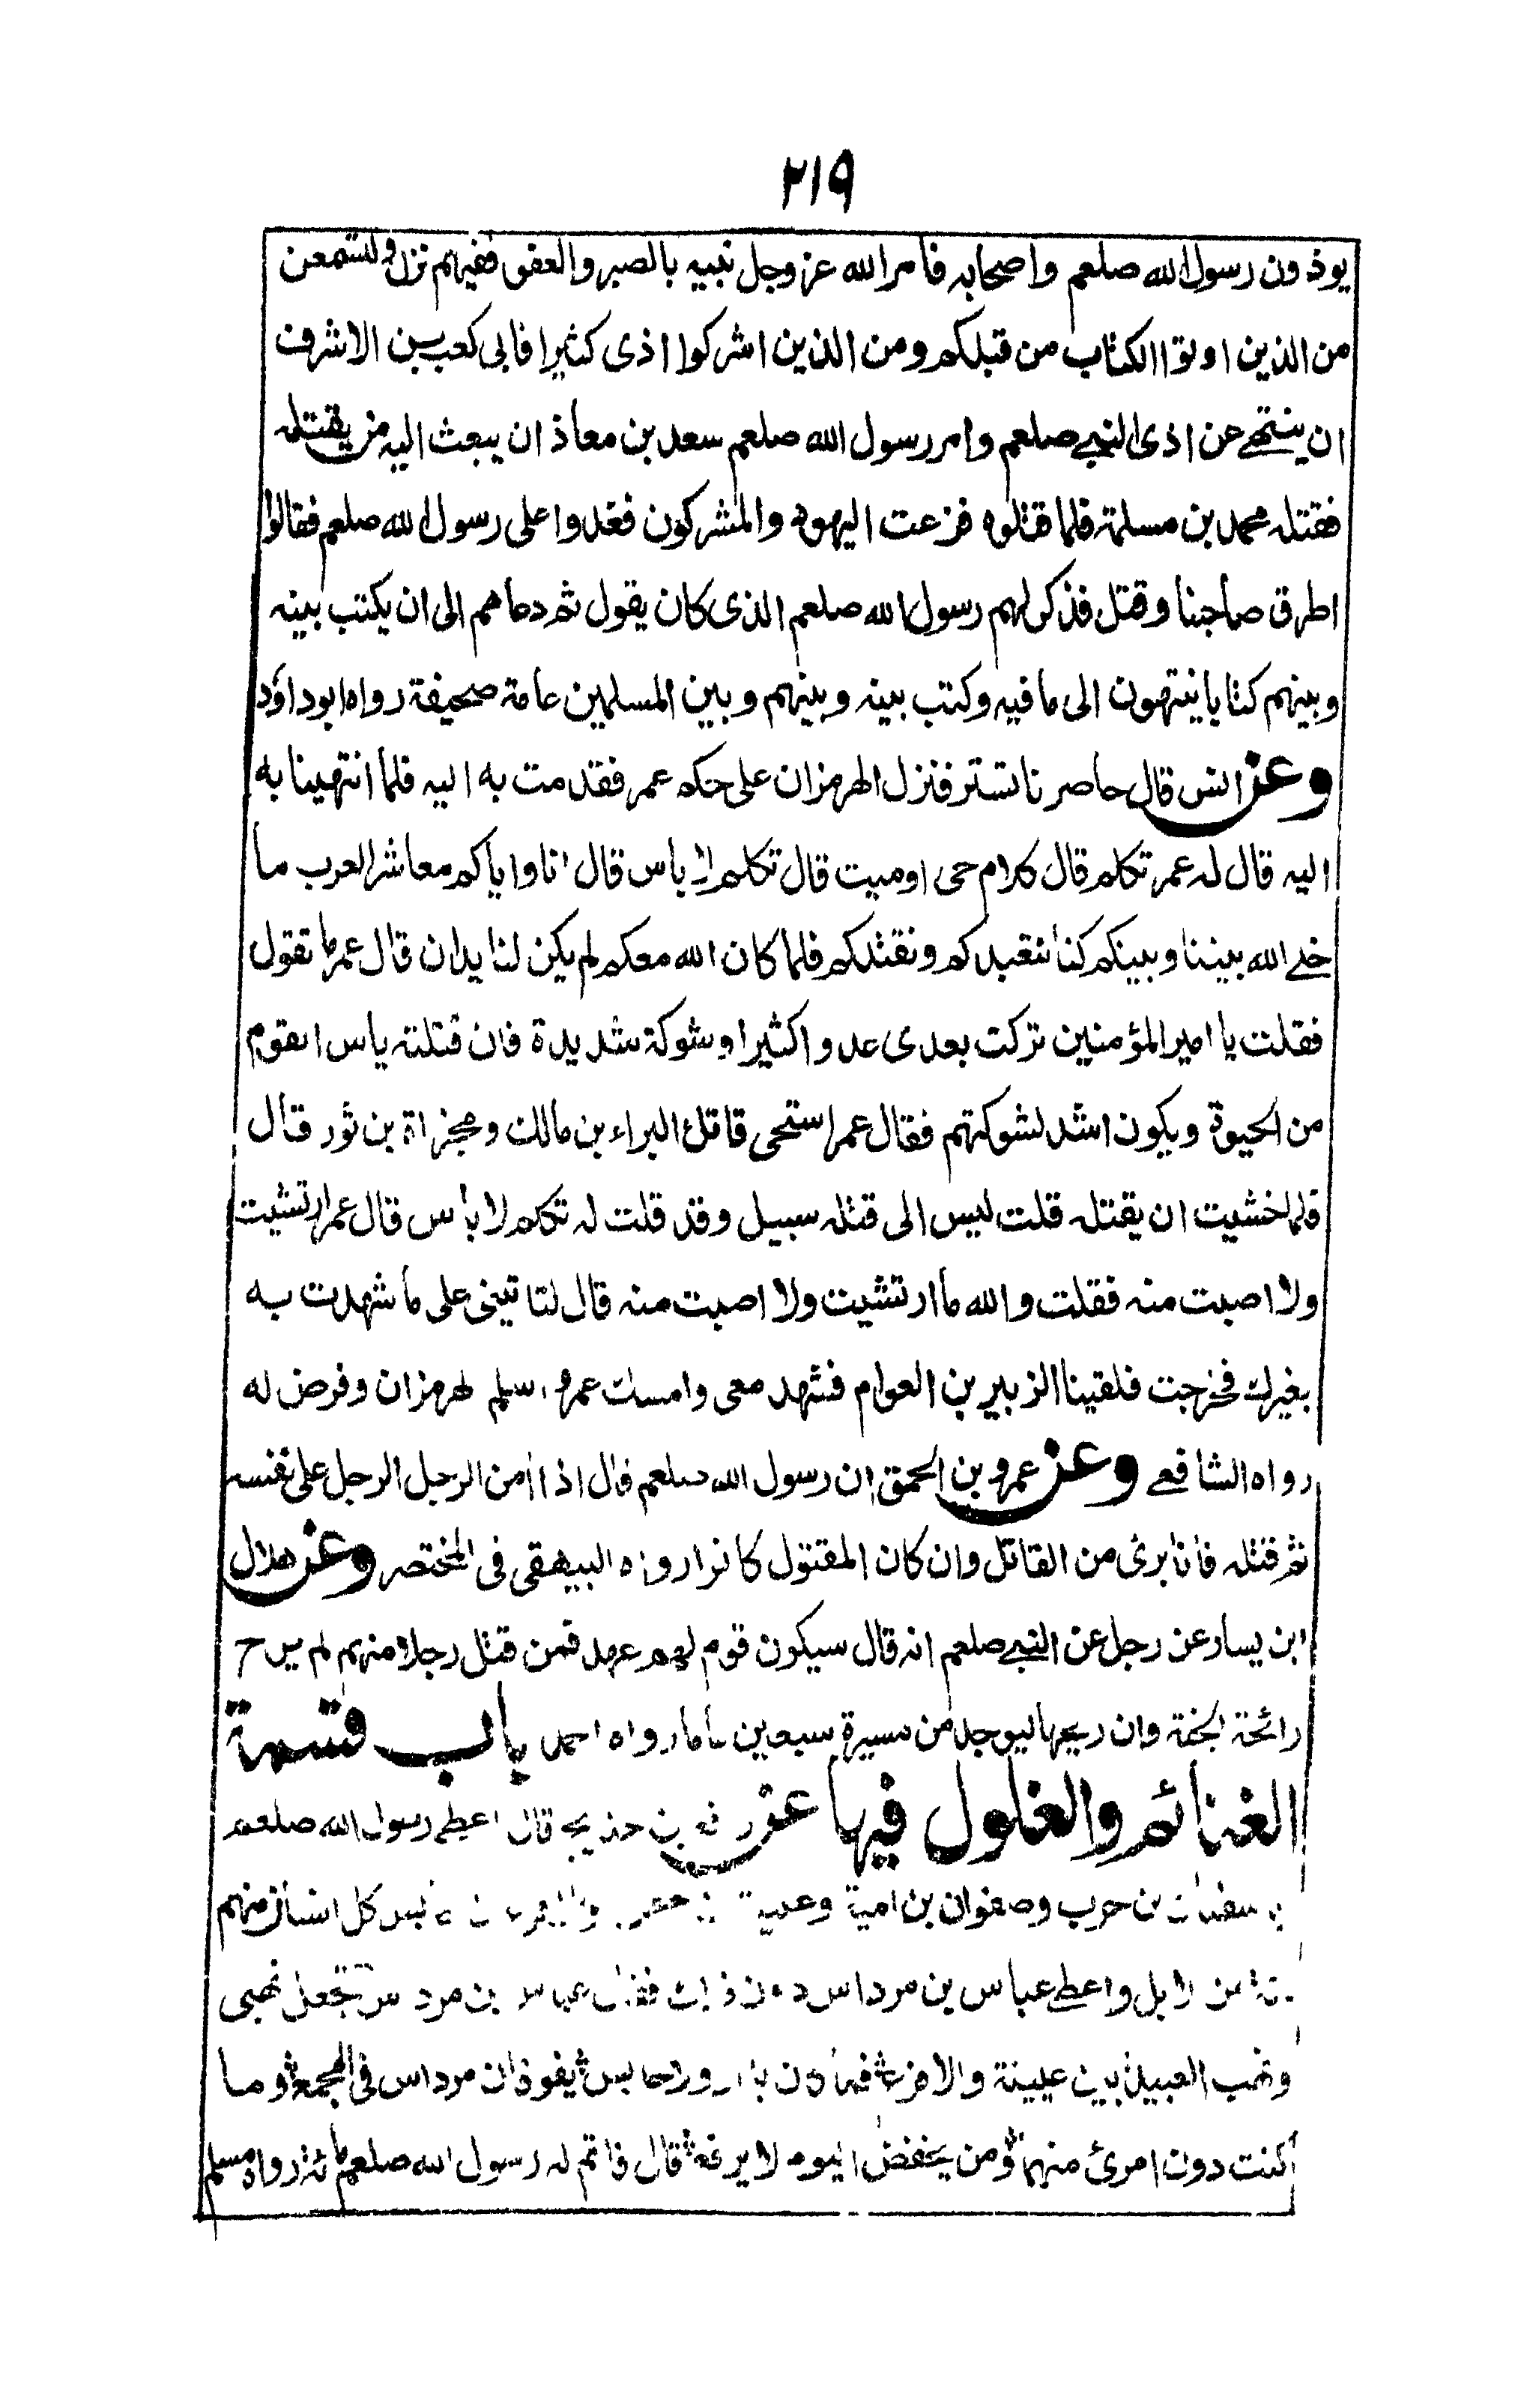 ٢١٩
يوذون رسول الله صلعم واصحابه فامر الله عز وجل نبيه بالصبر والعفو ففيهم نزل ولتسمعن
من الذين اوتوا الكتاب من قبلكم ومن الذين اشركوا اذى كثيرا فابى كعب بن الاشرف
ان ينتهے عن اذى النبے صلعم وامر رسول الله صلعم سعد بن معاذ ان يبعث اليه من يقتله
فقتله محمد بن مسلمة فلما قتلوه فزعت اليهود والمشركون فغدوا على رسول الله صلعم فقالوا
اطرق صاحبنا وقتل فذكر لهم رسول الله صلعم الذى كان يقول ثم دعاهم الى ان يكتب بينه
وبينهم كتابا ينتهون الى ما فيه وكتب بينه وبينهم وبين المسلمين عامة صحيفة رواه ابو داؤد
وعن انس قال حاصرنا تستر فنزل الهرمزان على حكم عمر فقدمت به اليه فلما انتهينا به
اليه قال له عمر تكلم قال كلام حى او ميت قال تكلم لا باس قال انا واياكم معاشر العرب ما
خلے الله بيننا وبينكم كنا نتعبدكم ونقتلكم فلما كان الله معكم لم يكن لنا يدان قال عمر ما تقول
فقلت يا امير المؤمنين تركت بعدى عدوا كثيرا وشوكة شديدة فان قتلته ياس القوم
من الحيوة ويكون اشد لشوكتهم فقال عمر استحى قاتل البراء بن مالك ومجزاة بن ثور قال
فلما خشيت ان يقتله قلت ليس الى قتله سبيل وقد قلت له تكلم لا بأس قال عمر ارتشيت
ولا اصبت منه فقلت والله ما ارتشيت ولا اصبت منه قال لتاتينى على ما شهدت به
بغيرك فخرجت فلقينا الزبير بن العوام فشهد معى وامسك عمر واسلم لهرمزان وفرض له
رواه الشافعے وعن عمرو بن الحمق ان رسول الله صلعم قال اذا امن الرجل الرجل على نفسه
ثم قتله فانا برئ من القاتل وان كان المقتول كافرا رواه البيهقى فى المختصر وعن هلال
ابن يسار عن رجل عن النبے صلعم انه قال سيكون قوم لهم عهد فمن قتل رجلا منهم لم يرح
رائحة الجنة وان ريحها ليوجد من مسيرة سبعين عاما رواه احمد باب قسمة
الغنائم والغلول فيها عن رافع بن خديج قال اعطے رسول الله صلعم
سفيان بن حرب وصفوان بن امية وعيينة بن حصن والاقرع بن حابس كل انسان منهم
مائة من الابل واعطے عباس بن مرداس دون ذلك فقال عباس بن مرداس تجعل نهبى
ونهب العبيد بين عيينة والاقرع فما كان بدر ولا حابس يفوقان مرداس فى المجمع وما
كنت دون امرئ منهما ومن يخفض اليوم لا يرفع قال فاتم له رسول الله صلعم مائة رواه مسلم